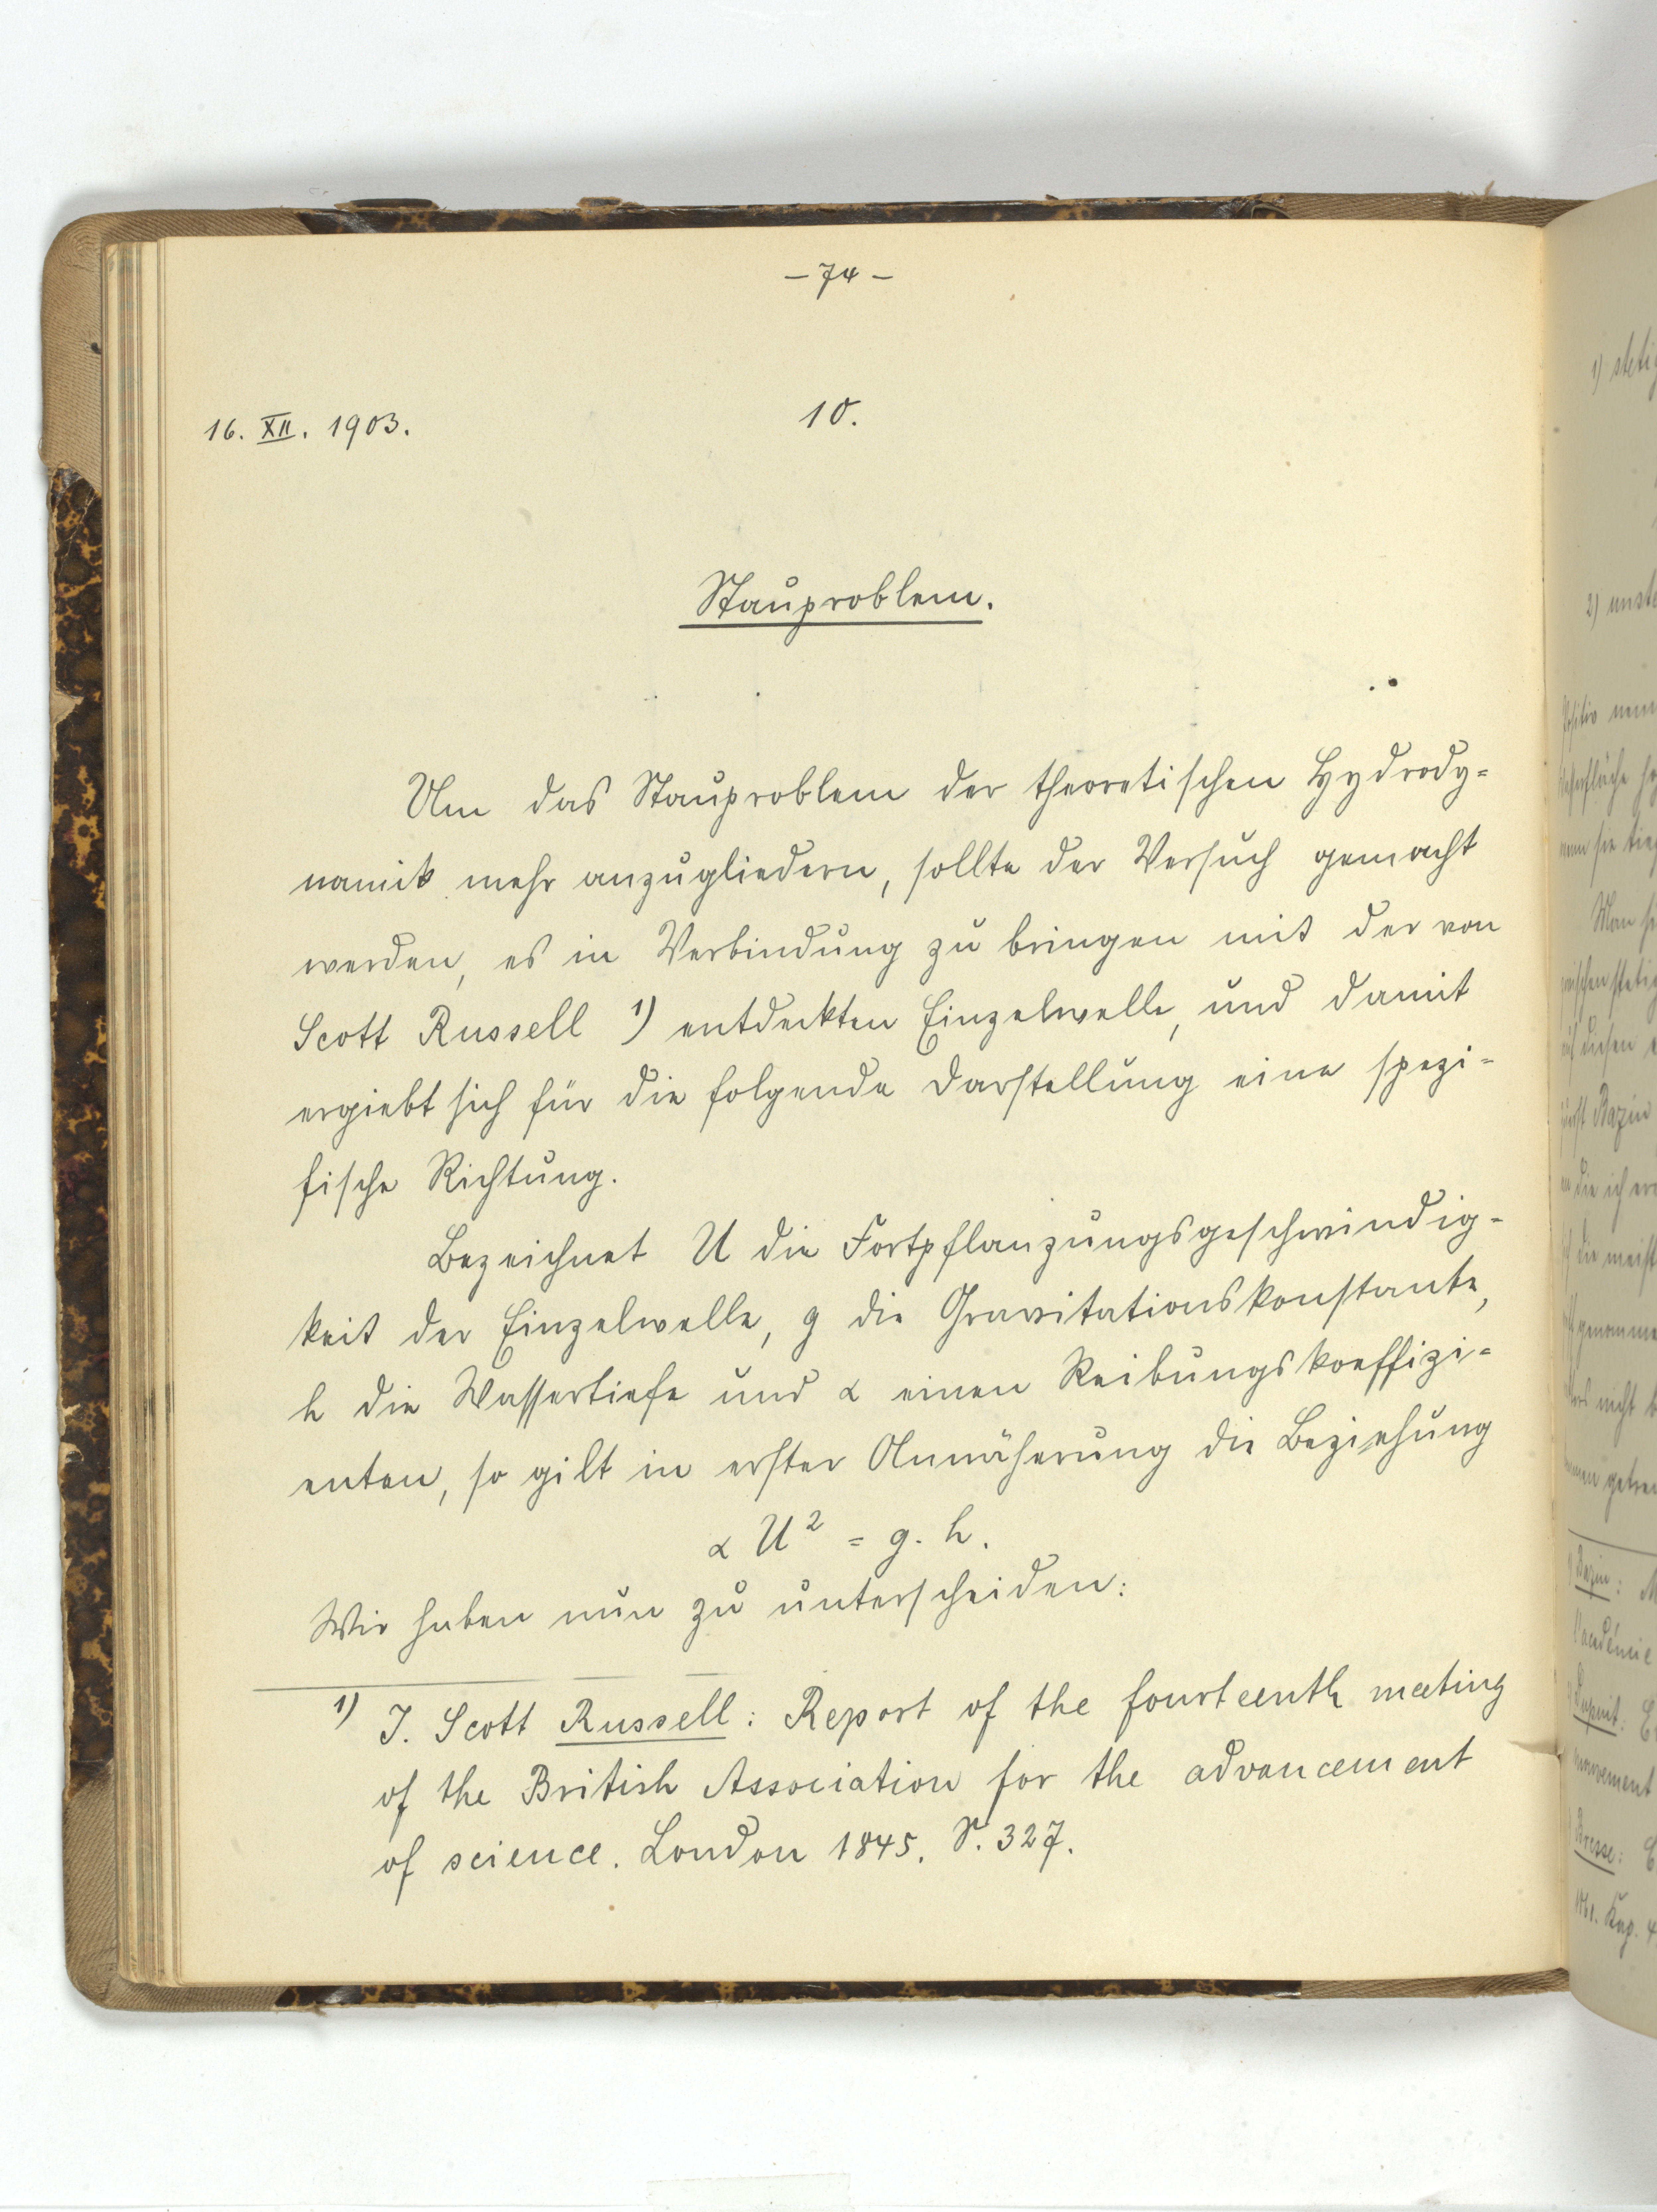 – 74 –
16. XII. 1903.
10.
Stauproblem.
Um das Stauproblem der theoretischen Hydrody=
namik mehr anzugliedern, sollte der Versuch gemacht
werden, es in Verbindung zu bringen mit der von
Scott Russell 1) entdeckten Einzelwelle, und damit
ergiebt sich für die folgende Darstellung eine spezi=
fische Richtung.
Bezeichnet U die Fortpflanzungsgeschwindig=
keit der Einzelwelle, g die Gravitationskonstante,
h die Wassertiefe und α einen Reibungskoeffizi=
enten, so gilt in erster Annäherung die Beziehung
α U² = g. h.
Wir haben nun zu unterscheiden:
1) J. Scott Russell: Report of the fourteenth meeting
of the British Association for the advancement
of science. London 1845. S. 327.
1)
2)
Man
Bazin
die ich
nicht
Bazin:
l'académie
Bresse:
1861. Kap. 4